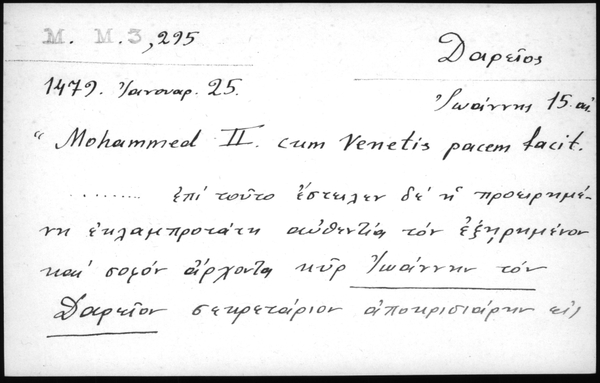 M. M. 3, 295
Δαρεῖος
1479. Ἰανουαρ. 25.
Ἰωάννης 15. αἰ
" Mohammed II. cum Venetis pacem facit.
......... ἐπί τοῦτο ἔστειλεν δέ ἡ προειρημέ-
νη ἐκλαμπροτάτη αὐθεντία τόν ἐξῃρημένον
καί σοφόν ἄρχοντα κῦρ Ἰωάννην τόν
Δαρεῖον σεκρετάριον ἀποκρισιάρην εἰς